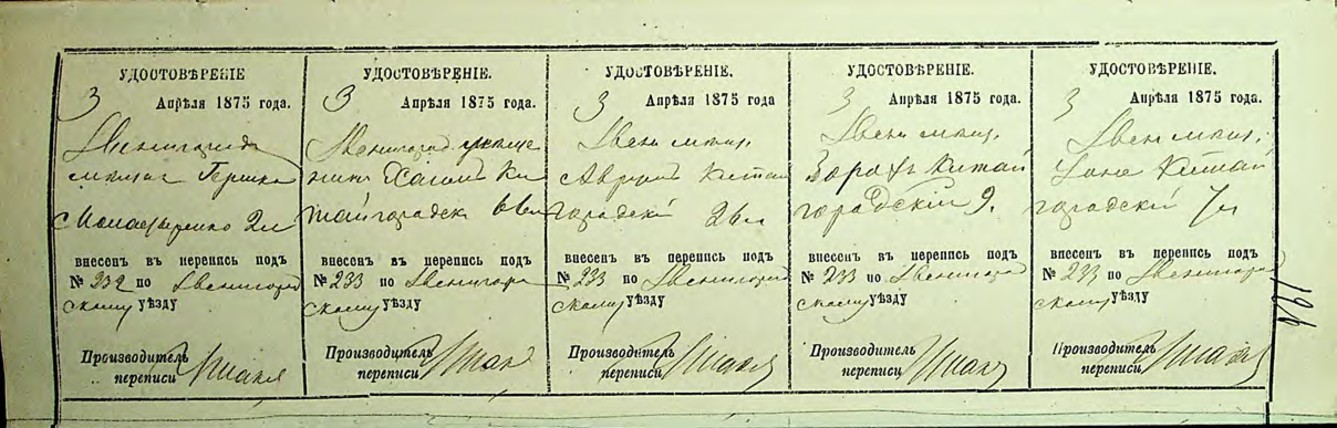 УДОСТОВѢРЕНІЕ
3 Апрѣля 1875 года.
Звенигород
мещан Гершка
Монастыренко 2л
внесенъ въ перепись подъ
№ 232 по Звенигород
скому уѣзду
Производитель
переписи
УДОСТОВѢРЕНІЕ.
3 Апрѣля 1875 года.
Звенигород. меща
нин Хаим Ки
тайгородск
внесенъ въ перепись подъ
№ 233 по Звенигород
скому уѣзду
Производитель
переписи
УДОСТОВѢРЕНІЕ.
3 Апрѣля 1875 года
Звен мещ.
Китай
городскій 26л
внесенъ въ перепись подъ
№ 233 по Звенигород
скому уѣзду
Производитель
переписи
УДОСТОВѢРЕНІЕ.
3 Апрѣля 1875 года.
Звен мещ.
Борох Китай
городскій 9.
внесенъ въ перепись подъ
№ 233 по Звенигород
скому уѣзду
Производитель
переписи
УДОСТОВѢРЕНІЕ.
3 Апрѣля 1875 года.
Звен мещ.
Китай
городскій 7л
внесенъ въ перепись подъ
№ 233 по Звенигород
скому уѣзду
Производитель
переписи